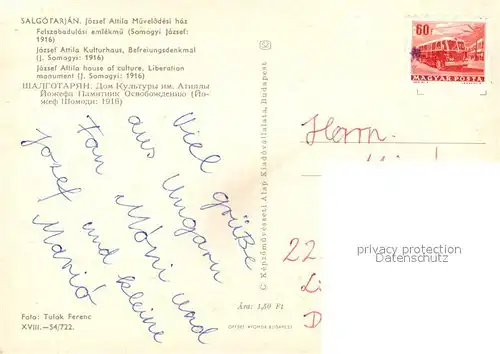 SALGÓTARJÁN. József Attila Művelődési ház
Felszabadulási emlékmű (Somogyi József:
1916)
József Attila Kulturhaus, Befreiungsdenkmal
(J. Somogyi: 1916)
József Attila house of culture, Liberation
monument (J. Somogyi: 1916)
ШАЛГОТАРЯН. Дом Культуры им. Атиллы
Йожефа Памятник Освобождению (Йо-
жеф Шомоди: 1916)
Viel grüße
aus Ungarn
Fam Móni und
Jozef und kleine
Marió
Foto: Tulok Ferenc
XVIII.—54/722.
Ára: 1,50 Ft
OFFSET NYOMDA BUDAPEST
© Képzőművészeti Alap Kiadóvállalata, Budapest
60f
MAGYAR POSTA
Herrn
22
Li
D
privacy protection
Datenschutz